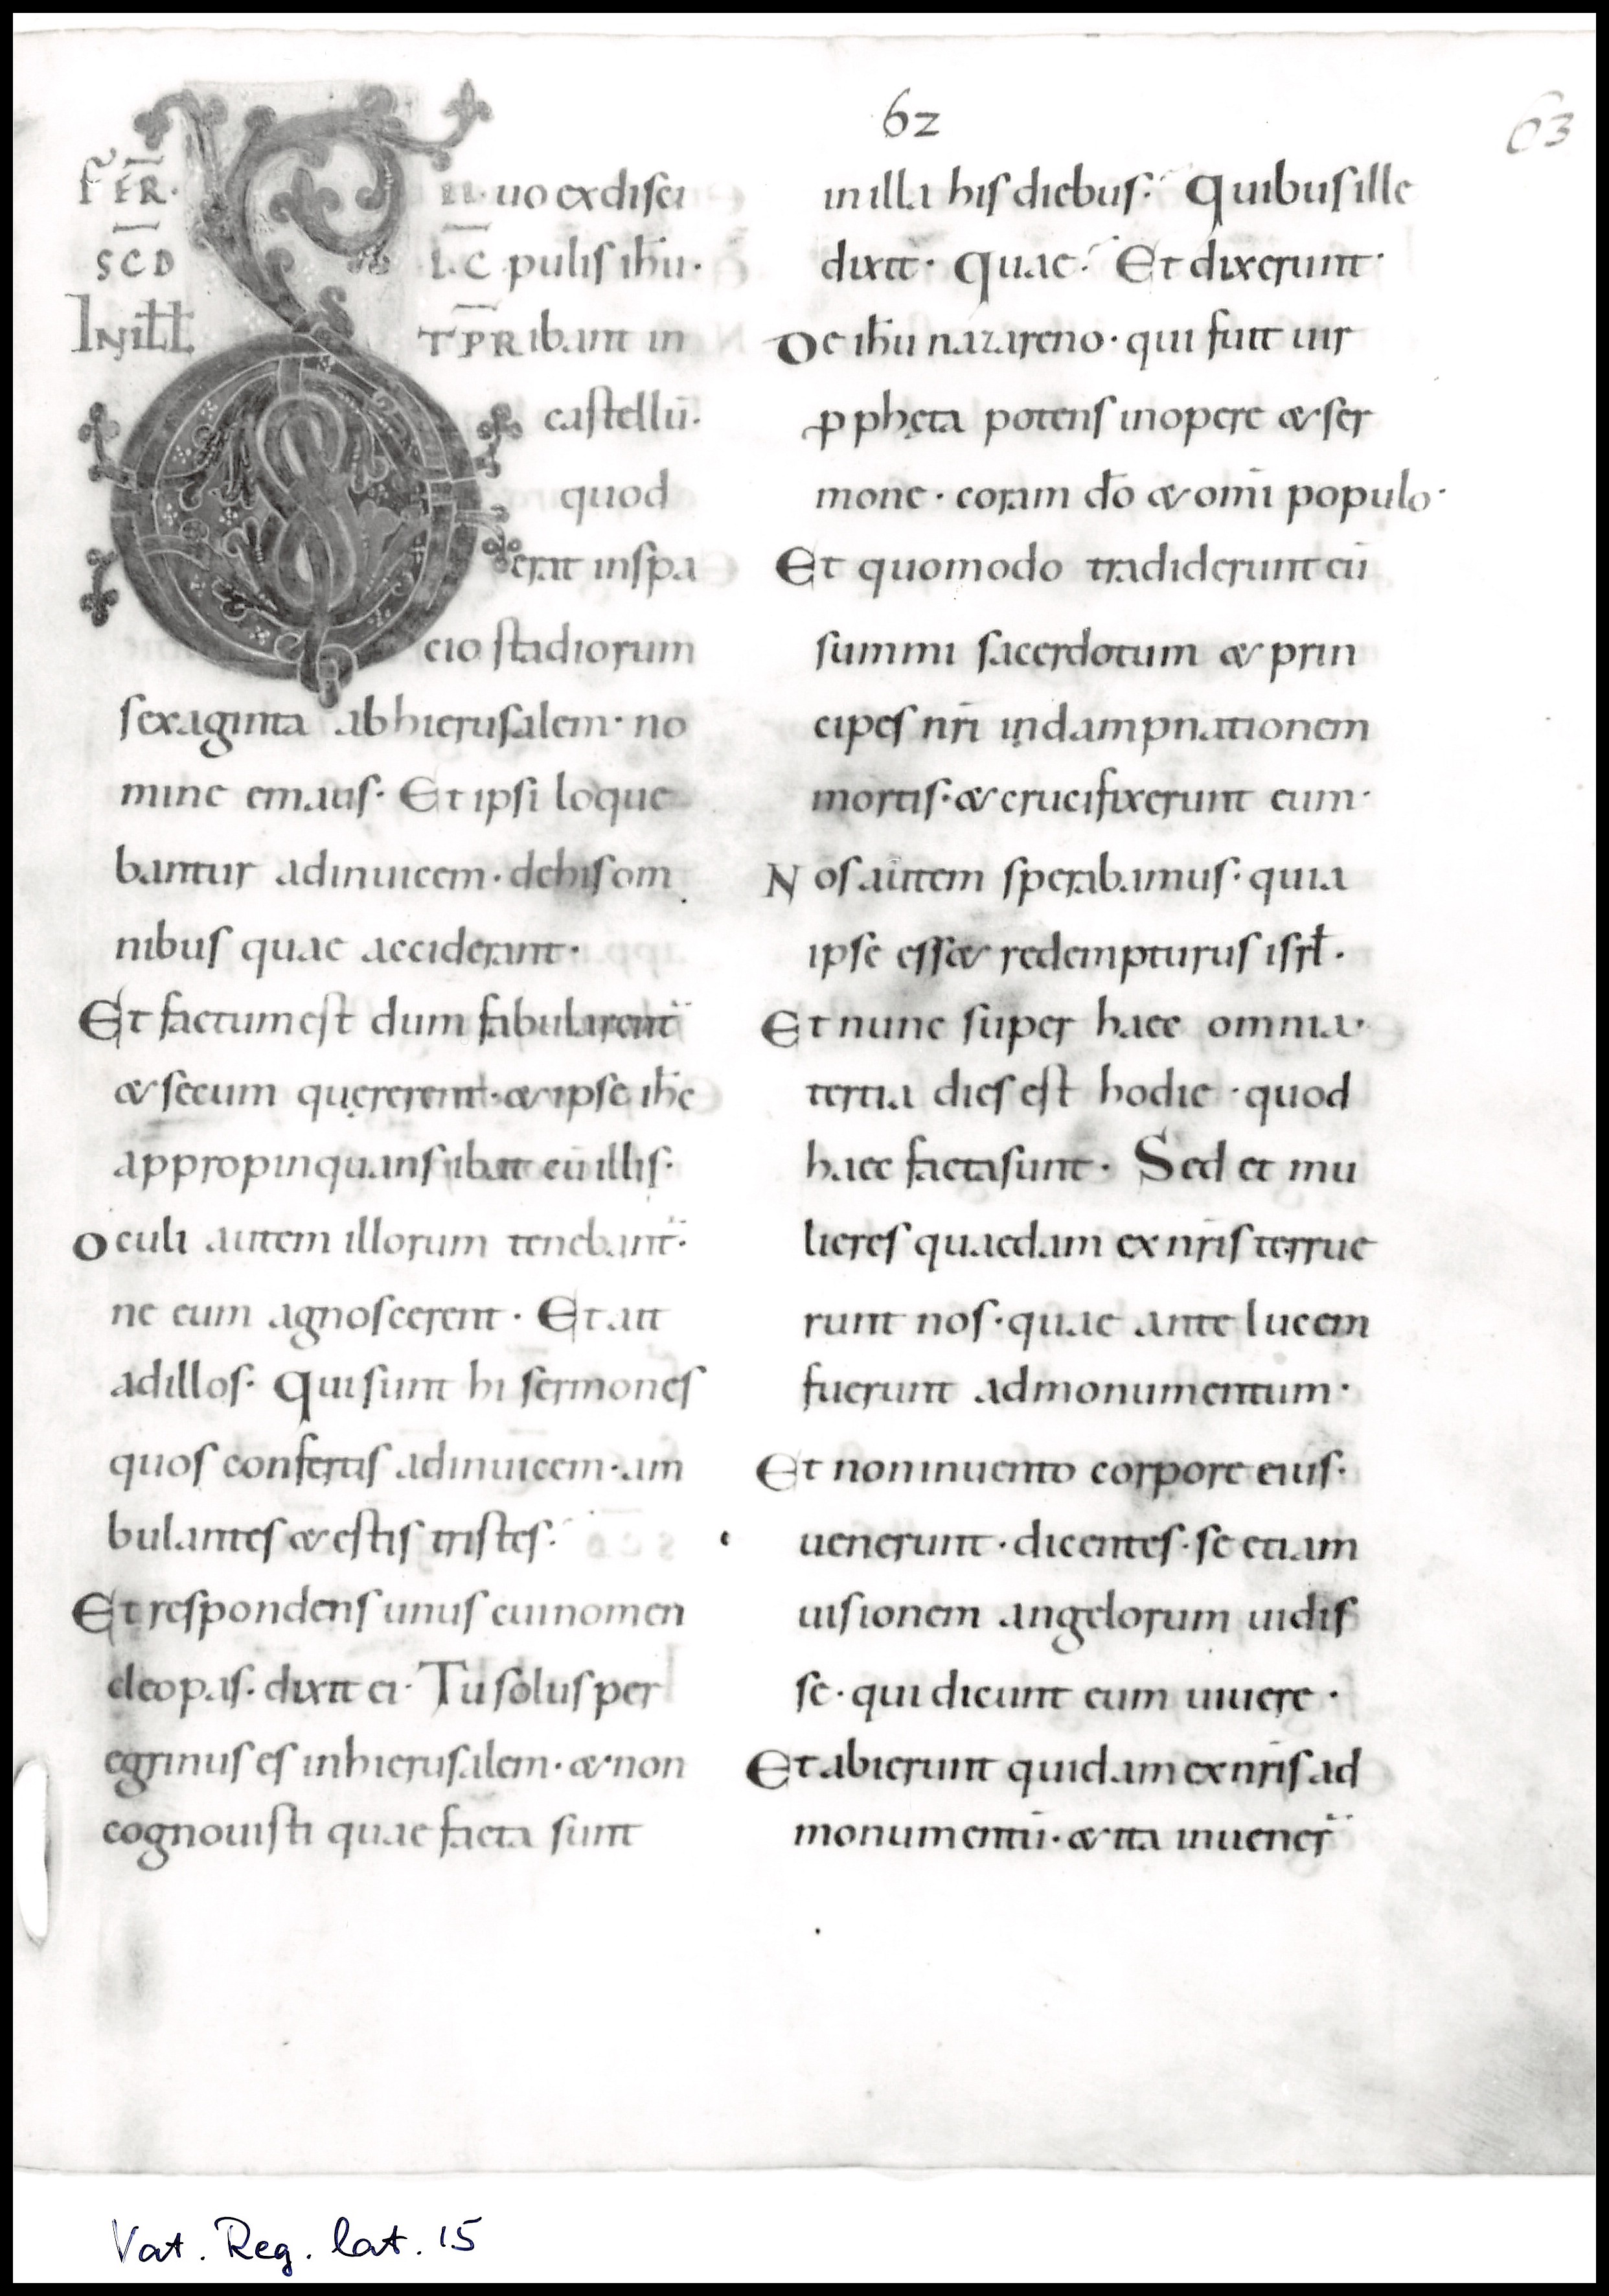 62
63
FER. II. uo ex disci
SCD LC pulis ih̅u·
INITL T̅P̅R ibant in
castellu̅·
quod
erat inspa
cio stadiorum
sexaginta abhierusalem· no
mine emaus· Et ipsi loque
bantur adinuicem· dehisom
nibus quae acciderant·
Et factumest dum fabularenẗ
& secum quęrerent· & ipse ih̅c
appropinquans ibat cu̅ illis·
oculi autem illorum tenebanẗ·
ne eum agnoscerent· Et ait
adillos· Quisunt hi sermones
quos confertis adinuicem· am
bulantes & estis tristes·
Et respondens unus cuinomen
cleopas· dixit ei· Tu solus per
egrinus es inhierusalem· & non
cognouisti quae facta sunt
inilla his diebus· Quibus ille
dixit· Quae· Et dixerunt·
De ih̅u nazareno· qui fuit uir
ꝓpheta potens inopere & ser
mone· coram d̅o & om̅i populo·
Et quomodo tradiderunt eu̅
summi sacerdotum & prin
cipes nr̅i indampnationem
mortis· & crucifixerunt eum·
Nos autem sperabamus· quia
ipse ess& redempturus isrł·
Et nunc super haec omnia·
tertia dies est hodie· quod
haec factasunt· Sed et mu
lieres quaedam ex nr̅is terrue
runt nos· quae ante lucem
fuerunt admonumentum·
Et noninuento corpore eius·
uenerunt· dicentes· se etiam
uisionem angelorum uidis
se· qui dicunt eum uiuere·
Et abierunt quidam ex nr̅is ad
monumentu̅· & ita inuener̈
Vat. Reg. lat. 15